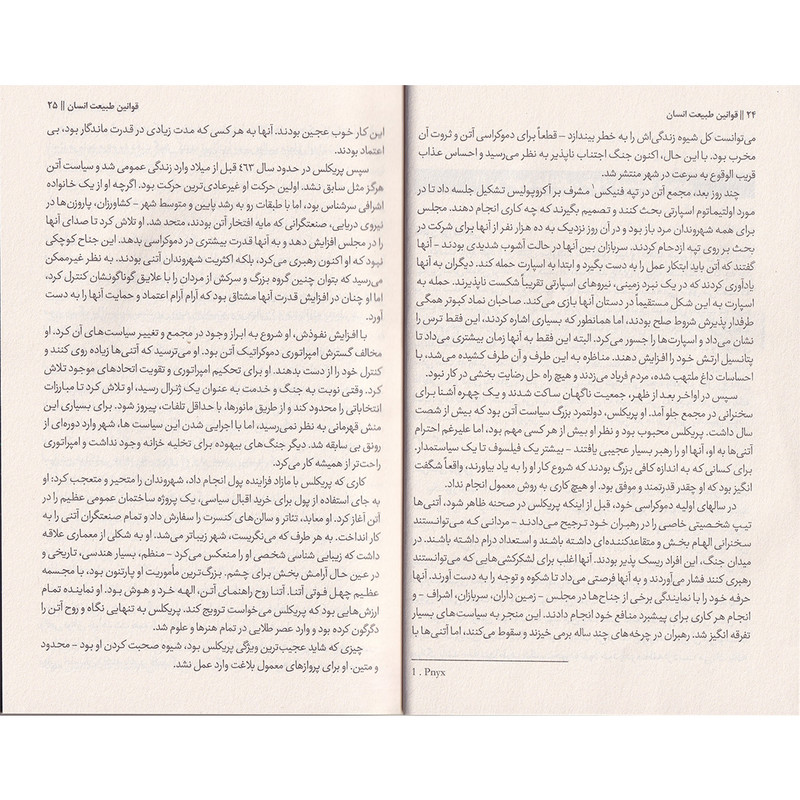 ۲۴ || قوانین طبیعت انسان
می‌توانست کل شیوه زندگی‌اش را به خطر بیندازد - قطعاً برای دموکراسی آتن و ثروت آن
مخرب بود. با این حال، اکنون جنگ اجتناب ناپذیر به نظر می‌رسید و احساس عذاب
قریب الوقوع به سرعت در شهر منتشر شد.
چند روز بعد، مجمع آتن در تپه فنیکس۱ مشرف بر آکروپولیس تشکیل جلسه داد تا در
مورد اولتیماتوم اسپارتی بحث کنند و تصمیم بگیرند که چه کاری انجام دهند. مجلس
برای همه شهروندان مرد باز بود و در آن روز نزدیک به ده هزار نفر از آنها برای شرکت در
بحث بر روی تپه ازدحام کردند. سربازان بین آنها در حالت آشوب شدیدی بودند - آنها
گفتند که آتن باید ابتکار عمل را به دست بگیرد و ابتدا به اسپارت حمله کند. دیگران به آنها
یادآوری کردند که در یک نبرد زمینی، نیروهای اسپارتی تقریباً شکست ناپذیرند. حمله به
اسپارت به این شکل مستقیماً در دستان آنها بازی می‌کند. صاحبان نماد کبوتر همگی
طرفدار پذیرش شروط صلح بودند، اما همانطور که بسیاری اشاره کردند، این فقط ترس را
نشان می‌داد و اسپارت‌ها را جسور می‌کرد. البته این فقط به آنها زمان بیشتری می‌داد تا
پتانسیل ارتش خود را افزایش دهند. مناظره به این طرف و آن طرف کشیده می‌شد، با
احساسات داغ ملتهب شده، مردم فریاد می‌زدند و هیچ راه حل رضایت بخشی در کار نبود.
سپس در اواخر بعد از ظهر، جمعیت ناگهان ساکت شدند و یک چهره آشنا برای
سخنرانی در مجمع جلو آمد. او پریکلس، دولتمرد بزرگ سیاست آتن بود که بیش از شصت
سال داشت. پریکلس محبوب بود و نظر او بیش از هر کسی مهم بود، اما علیرغم احترام
آتنی‌ها به او، آنها او را رهبر بسیار عجیبی یافتند - بیشتر یک فیلسوف تا یک سیاستمدار.
برای کسانی که به اندازه کافی بزرگ بودند که شروع کار او را به یاد بیاورند، واقعاً شگفت
انگیز بود که او چقدر قدرتمند و موفق بود. او هیچ کاری به روش معمول انجام نداد.
در سالهای اولیه دموکراسی خود، قبل از اینکه پریکلس در صحنه ظاهر شود، آتنی‌ها
تیپ شخصیتی خاصی را در رهبران خود ترجیح می‌دادند - مردانی که می‌توانستند
سخنرانی الهام بخش و متقاعدکننده‌ای داشته باشند و استعداد درام داشته باشند. در
میدان جنگ، این افراد ریسک پذیر بودند. آنها اغلب برای لشکرکشی‌هایی که می‌توانستند
رهبری کنند فشار می‌آوردند و به آنها فرصتی می‌داد تا شکوه و توجه را به دست آورند. آنها
حرفه خود را با نمایندگی برخی از جناح‌ها در مجلس - زمین داران، سربازان، اشراف - و
انجام هر کاری برای پیشبرد منافع خود انجام دادند. این منجر به سیاست‌های بسیار
تفرقه انگیز شد. رهبران در چرخه‌های چند ساله برمی خیزند و سقوط می‌کنند، اما آتنی‌ها با
1 . Pnyx
قوانین طبیعت انسان || ۲۵
این کار خوب عجین بودند. آنها به هر کسی که مدت زیادی در قدرت ماندگار بود، بی
اعتماد بودند.
سپس پریکلس در حدود سال ٤٦٣ قبل از میلاد وارد زندگی عمومی شد و سیاست آتن
هرگز مثل سابق نشد. اولین حرکت او غیرعادی‌ترین حرکت بود. اگرچه او از یک خانواده
اشرافی سرشناس بود، اما با طبقات رو به رشد پایین و متوسط شهر - کشاورزان، پاروزن‌ها در
نیروی دریایی، صنعتگرانی که مایه افتخار آتن بودند، متحد شد. او تلاش کرد تا صدای آنها
را در مجلس افزایش دهد و به آنها قدرت بیشتری در دموکراسی بدهد. این جناح کوچکی
نبود که او اکنون رهبری می‌کرد، بلکه اکثریت شهروندان آتنی بودند. به نظر غیرممکن
می‌رسید که بتوان چنین گروه بزرگ و سرکش از مردان را با علایق گوناگونشان کنترل کرد،
اما او چنان در افزایش قدرت آنها مشتاق بود که آرام آرام اعتماد و حمایت آنها را به دست
آورد.
با افزایش نفوذش، او شروع به ابراز وجود در مجمع و تغییر سیاست‌های آن کرد. او
مخالف گسترش امپراتوری دموکراتیک آتن بود. او می‌ترسید که آتنی‌ها زیاده روی کنند و
کنترل خود را از دست بدهند. او برای تحکیم امپراتوری و تقویت اتحادهای موجود تلاش
کرد. وقتی نوبت به جنگ و خدمت به عنوان یک ژنرال رسید، او تلاش کرد تا مبارزات
انتخاباتی را محدود کند و از طریق مانورها، با حداقل تلفات، پیروز شود. برای بسیاری این
منش قهرمانی به نظر نمی‌رسید، اما با اجرایی شدن این سیاست ها، شهر وارد دوره‌ای از
رونق بی سابقه شد. دیگر جنگ‌های بیهوده برای تخلیه خزانه وجود نداشت و امپراتوری
راحت‌تر از همیشه کار می‌کرد.
کاری که پریکلس با مازاد فزاینده پول انجام داد، شهروندان را متحیر و متعجب کرد: او
به جای استفاده از پول برای خرید اقبال سیاسی، یک پروژه ساختمان عمومی عظیم را در
آتن آغاز کرد. او معابد، تئاتر و سالن‌های کنسرت را سفارش داد و تمام صنعتگران آتنی را به
کار انداخت. به هر طرف که می‌نگریست، شهر زیباتر می‌شد. او به شکلی از معماری علاقه
داشت که زیبایی شناسی شخصی او را منعکس می‌کرد - منظم، بسیار هندسی، تاریخی و
در عین حال آرامش بخش برای چشم. بزرگ‌ترین مأموریت او پارتنون بود، با مجسمه
عظیم چهل فوتی آتنا. آتنا روح راهنمای آتن، الهه خرد و هوش بود. او نماینده تمام
ارزش‌هایی بود که پریکلس می‌خواست ترویج کند. پریکلس به تنهایی نگاه و روح آتن را
دگرگون کرده بود و وارد عصر طلایی در تمام هنرها و علوم شد.
چیزی که شاید عجیب‌ترین ویژگی پریکلس بود، شیوه صحبت کردن او بود - محدود
و متین. او برای پروازهای معمول بلاغت وارد عمل نشد.